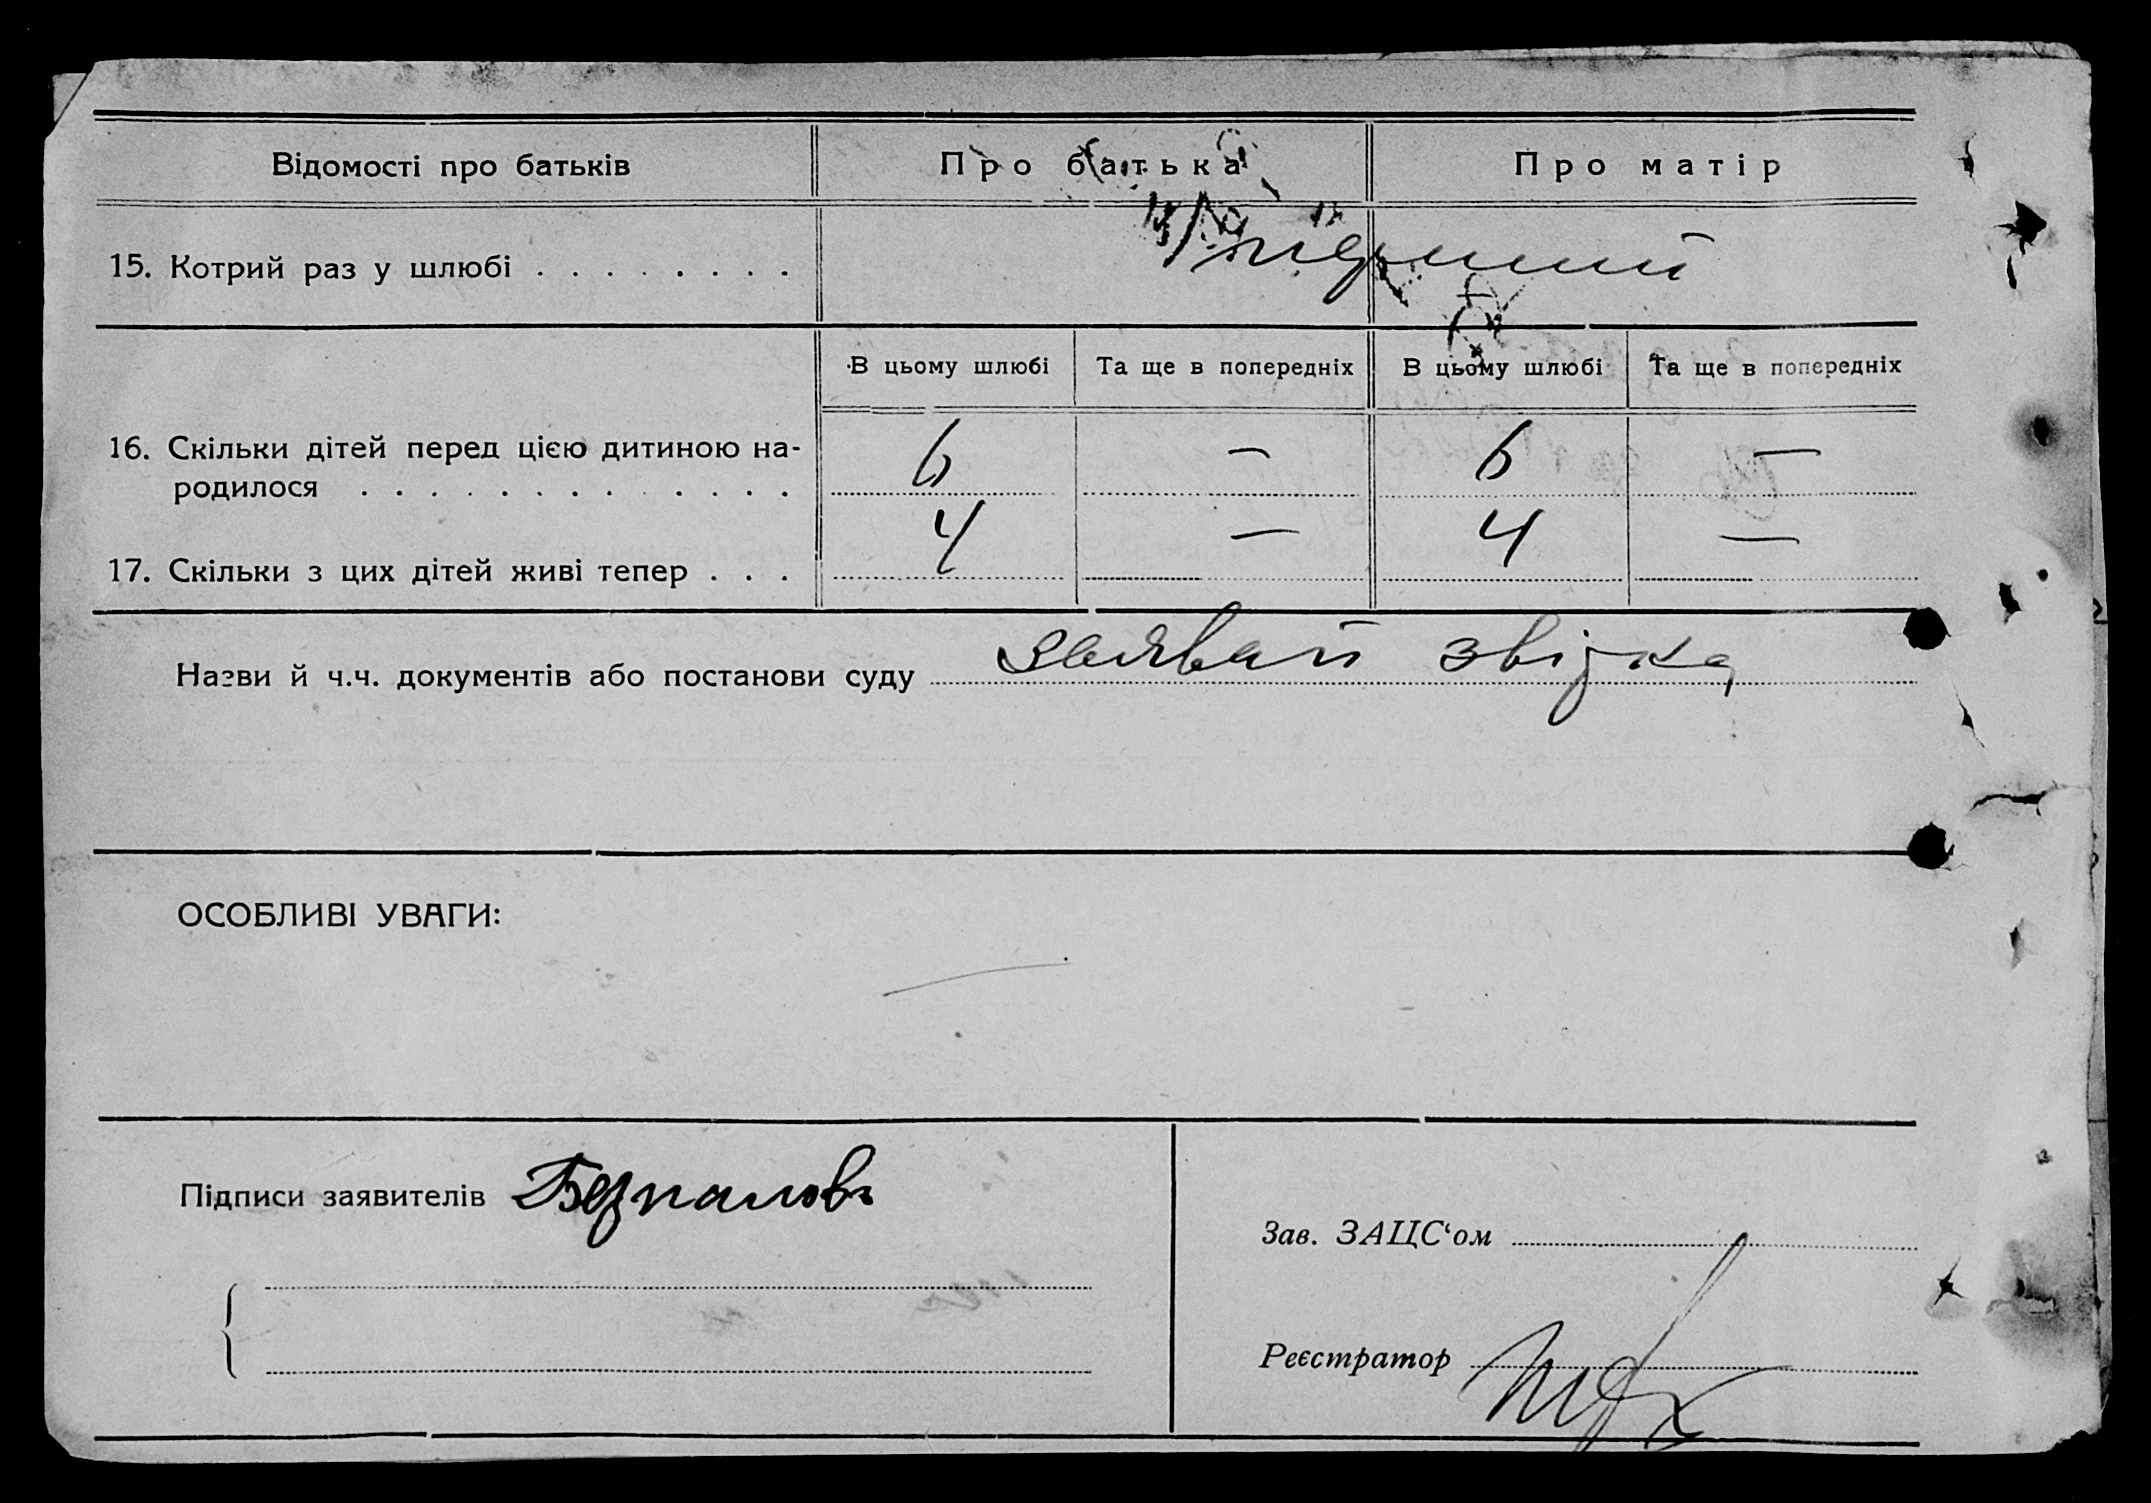 Відомості про батьків
Про батька
Про матір
15. Котрий раз у шлюбі . . . . . . .
перший
В цьому шлюбі
Та ще в попередніх
В цьому шлюбі
Та ще в попередніх
16. Скільки дітей перед цією дитиною на-
родилося . . . . . . . . . . . . .
6 — 6 —
17. Скільки з цих дітей живі тепер . . .
4 — 4 —
Назви й ч.ч. документів або постанови суду
ОСОБЛИВІ УВАГИ:
Підписи заявителів Безпаловъ
Зав. ЗАЦС‘ом
Реєстратор